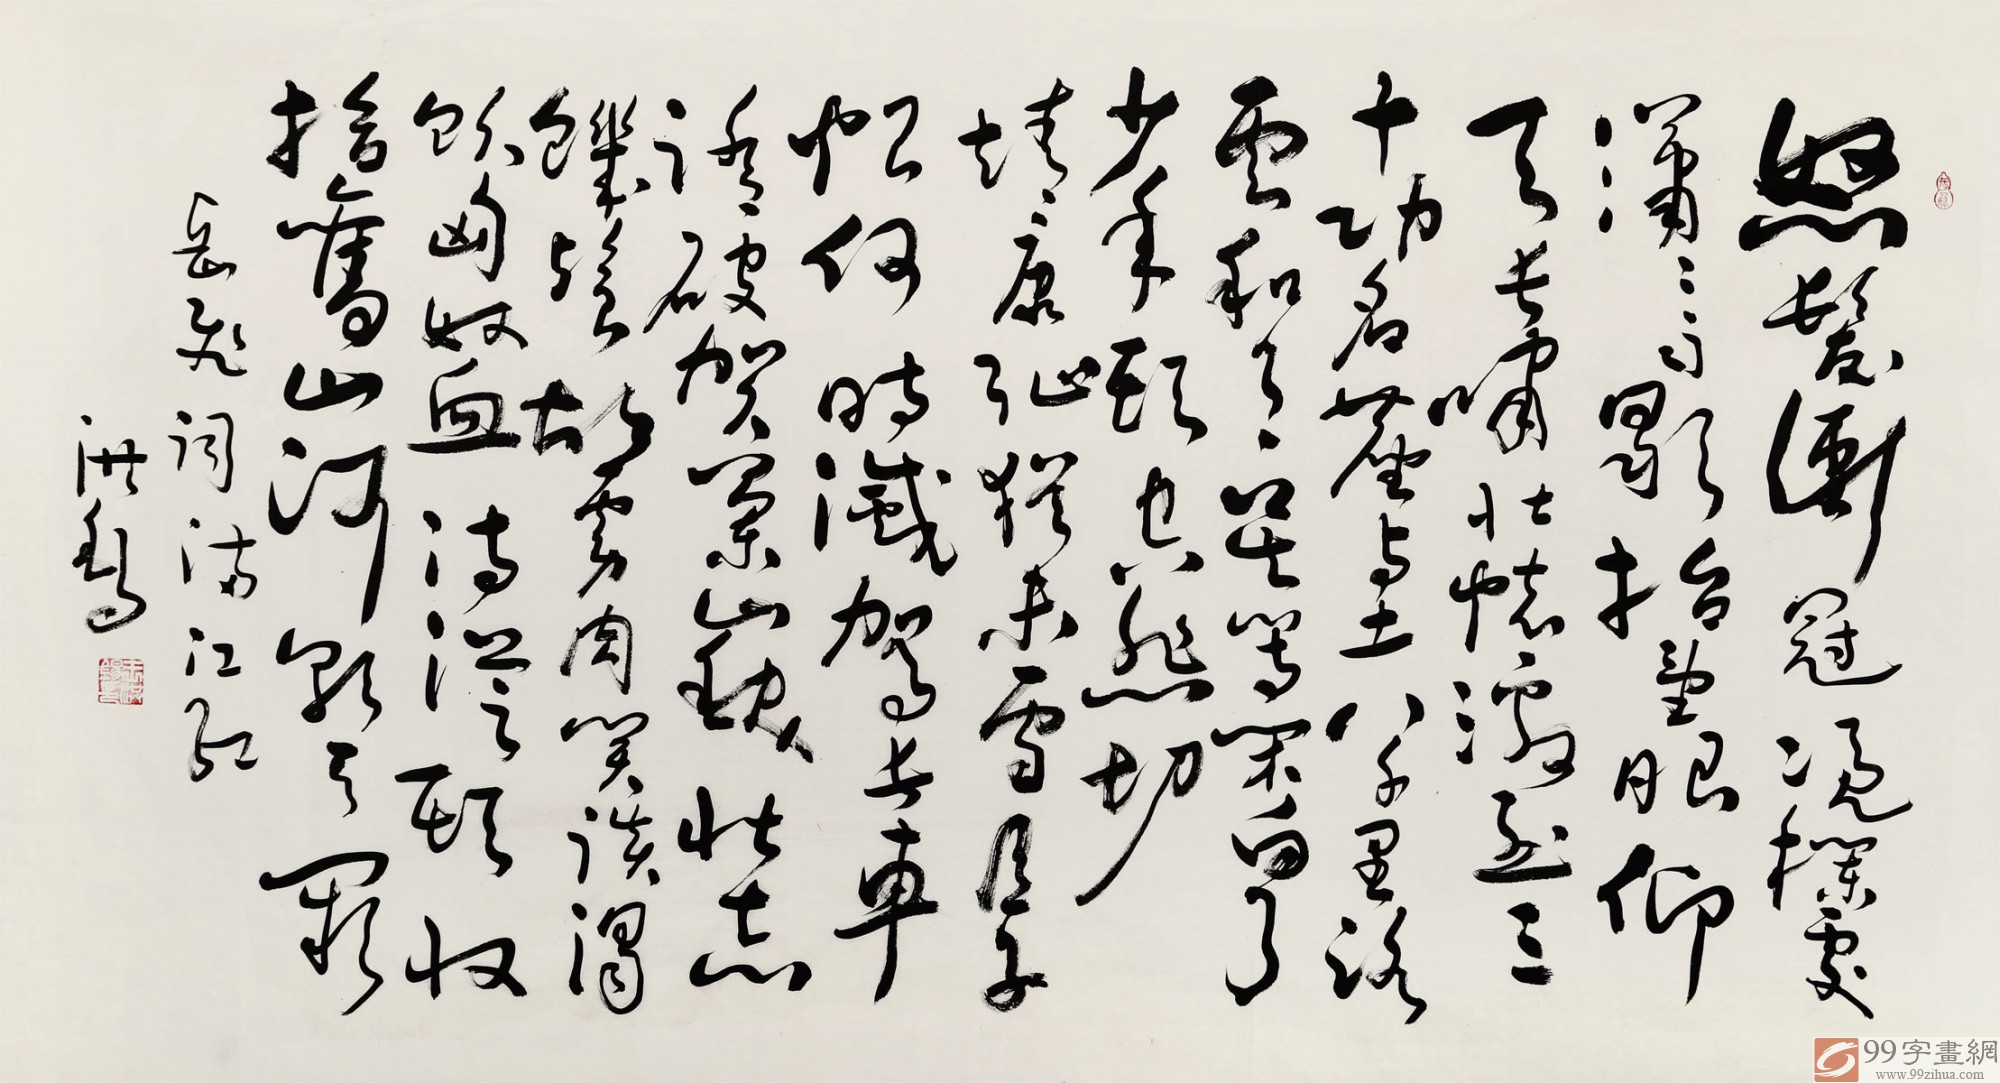 怒髮衝冠憑欄處
瀟〻雨歇抬望眼仰
天長嘯壯懷激烈三
十功名塵与土八千里路
雲和月莫等閑白了
少年頭空悲切
靖康恥猶未雪臣子
恨何時滅駕長車
踏破賀蘭山缺壯志
饑餐胡虜肉笑談渴
飲匈奴血待從頭收
拾舊山河朝天闕
岳飛詞滿江紅
洪
99字畫網
www.99zihua.com